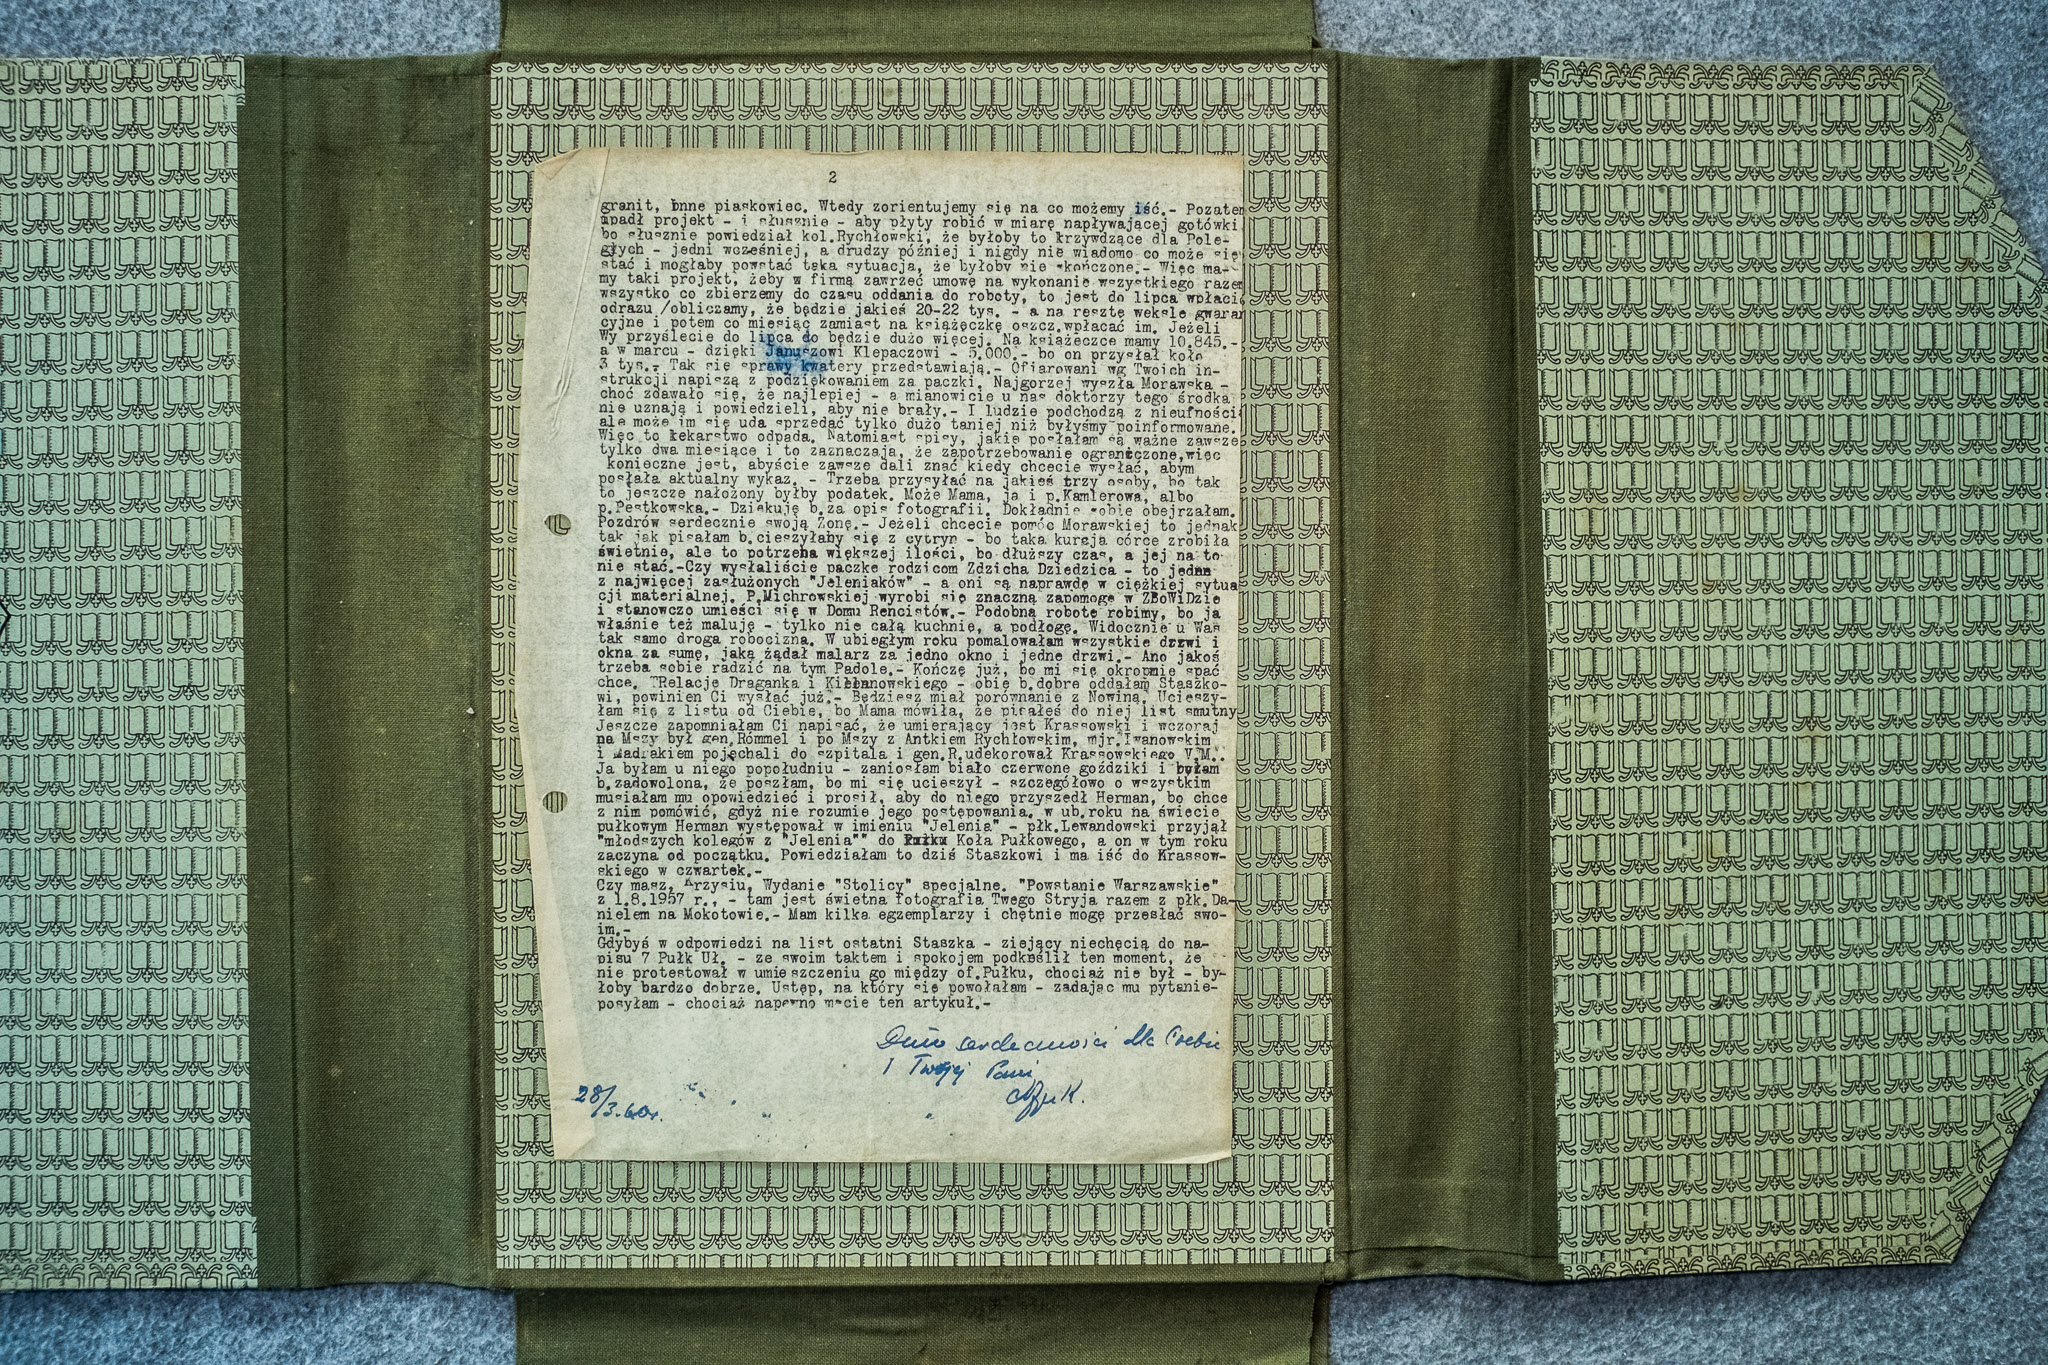 2
granit, inne piaskowiec. Wtedy zorientujemy się na co możemy iść.- Pozatem
upadł projekt - i słusznie - aby płyty robić w miarę napływającej gotówki
bo słusznie powiedział kol.Rychłowski, że byłoby to krzywdzące dla Pole-
głych - jedni wcześniej, a drudzy później i nigdy nie wiadomo co może się
stać i mogłaby powstać taka sytuacja, że byłoby nie skończone.- Więc ma-
my taki projekt, żeby w firmą zawrzeć umowę na wykonanie wszystkiego razem
wszystko co zbierzemy do czasu oddania do roboty, to jest do lipca wpłacić
odrazu /obliczamy, że będzie jakieś 20-22 tys. - a na resztę weksle gwaran
cyjne i potem co miesiąc zamiast na książeczkę oszcz.wpłacać im. Jeżeli
Wy przyślecie do lipca to będzie dużo więcej. Na książeczce mamy 10.845.-
a w marcu - dzięki Januszowi Klepaczowi - 5.000.- bo on przysłał koło
3 tys.- Tak się sprawy kwatery przedstawiają.- Ofiarowani wg Twoich in-
strukcji napiszą z podziękowaniem za paczki. Najgorzej wyszła Morawska -
choć zdawało się, że najlepiej - a mianowicie u nas doktorzy tego środka
nie uznają i powiedzieli, aby nie brały.- I ludzie podchodzą z nieufności
ale może im się uda sprzedać tylko dużo taniej niż byłyśmy poinformowane.
Więc to lekarstwo odpada. Natomiast spisy, jakie posłałam są ważne zawsze
tylko dwa miesiące i to zaznaczają, że zapotrzebowanie ograniczone,więc
konieczne jest, abyście zawsze dali znać kiedy chcecie wysłać, abym
posłała aktualny wykaz. - Trzeba przysyłać na jakieś trzy osoby, bo tak
to jeszcze nałożony byłby podatek. Może Mama, ja i p.Kamlerowa, albo
p.Pestkowska.- Dziękuję b.za opis fotografii. Dokładnie sobie obejrzałam.
Pozdrów serdecznie swoją Żonę.- Jeżeli chcecie pomóc Morawskiej to jednak
tak jak pisałam b.cieszyłaby się z cytryn - bo taka kuracja córce zrobiła
świetnie, ale to potrzeba większej ilości, bo dłuższy czas, a jej na to
nie stać.-Czy wysłaliście paczkę rodzicom Zdzicha Dziedzica - to jeden
z najwięcej zasłużonych "Jeleniaków" - a oni są naprawdę w ciężkiej sytua
cji materialnej. P.Michrowskiej wyrobi się znaczną zapomogę w ZBoWiDzie
i stanowczo umieści się w Domu Rencistów.- Podobną robotę robimy, bo ja
właśnie też maluję - tylko nie całą kuchnię, a podłogę. Widocznie u Was
tak samo droga robocizna. W ubiegłym roku pomalowałam wszystkie drzwi i
okna za sumę, jaką żądał malarz za jedno okno i jedne drzwi.- Ano jakoś
trzeba sobie radzić na tym Padole.- Kończę już, bo mi się okropnie spać
chce. Relacje Draganka i - obie b.dobre oddałam Staszko-
wi, powinien Ci wysłać już.- Będziesz miał porównanie z Nowiną. Ucieszy-
łam się z listu od Ciebie, bo Mama mówiła, że pisałeś do niej list smutny
Jeszcze zapomniałam Ci napisać, że umierający jest Krassowski i wczoraj
na Mszy był gen.Rómmel i po Mszy z Antkiem Rychłowskim, mjr.Iwanowskim
i Madrakiem pojechali do szpitala i gen.R.udekorował Krassowskiego V.M..
Ja byłam u niego popołudniu - zaniosłam biało czerwone goździki i byłam
b.zadowolona, że poszłam, bo mi się ucieszył - szczegółowo o wszystkim
musiałam mu opowiedzieć i prosił, aby do niego przyszedł Herman, bo chce
z nim pomówić, gdyż nie rozumie jego postępowania. w ub.roku na święcie
pułkowym Herman występował w imieniu "Jelenia" - płk.Lewandowski przyjął
"młodszych kolegów z "Jelenia"" do Pułku Koła Pułkowego, a on w tym roku
zaczyna od początku. Powiedziałam to dziś Staszkowi i ma iść do Krassow-
skiego w czwartek.-
Czy masz, Krzysiu, Wydanie "Stolicy" specjalne. "Powstanie Warszawskie"
z 1.8.1957 r., - tam jest świetna fotografia Twego Stryja razem z płk.Da-
nielem na Mokotowie.- Mam kilka egzemplarzy i chętnie mogę przesłać swo-
im.-
Gdybyś w odpowiedzi na list ostatni Staszka - ziejący niechęcią do na-
pisu 7 Pułk Uł. - ze swoim taktem i spokojem podkreślił ten moment, że
nie protestował w umieszczeniu go między of.Pułku, chociaż nie był - by-
łoby bardzo dobrze. Ustęp, na który się powołałam - zadając mu pytanie-
posyłam - chociaż napewno macie ten artykuł.-
Dużo serdeczności dla Ciebie
i Twojej Pani
28/3.60r.